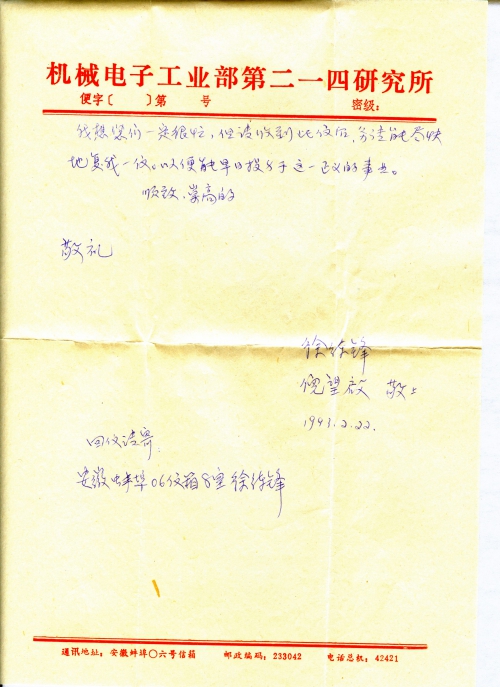 机械电子工业部第二一四研究所
便字〔 〕第 号 密级：
我想您们一定很忙，但请收到此信后，务请能尽快
地复我一信。以便能早日投身于这一正义的事业。
顺致 崇高的
敬礼
徐练锋
倪望啟 敬上
1993.2.22.
回信请寄：
安徽蚌埠06信箱8室徐练锋
通讯地址：安徽蚌埠〇六号信箱 邮政编码：233042 电话总机：42421